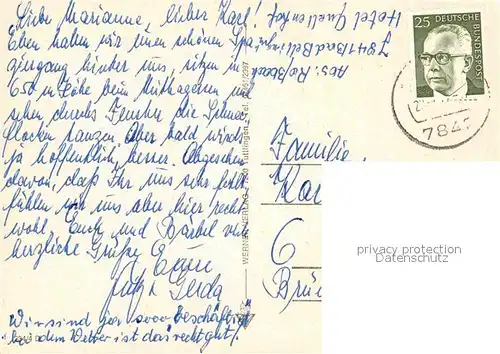 Liebe Marianne, lieber Karl!
Eben haben wir einen schönen Spa-
ziergang hinter uns, sitzen in
650 m Höhe beim Mittagessen und
sehen durchs Fenster die Schnee-
flocken tanzen. Aber bald wird's
ja hoffentlich besser. Abgesehen
davon, daß Ihr uns sehr fehlt
fühlen wir uns aber hier recht
wohl. Euch und Bärbel viele
herzliche Grüße Eure
Gerda
Wir sind ja so beschäftigt
bei dem Wetter ist das recht gut!
Abs:
7841 Bad Bellingen
Hotel Quellenhof
WERNER VERLAG
Tuttlingen
25
DEUTSCHE
BUNDESPOST
784
Familie
Kar
6
Brü
privacy protection
Datenschutz